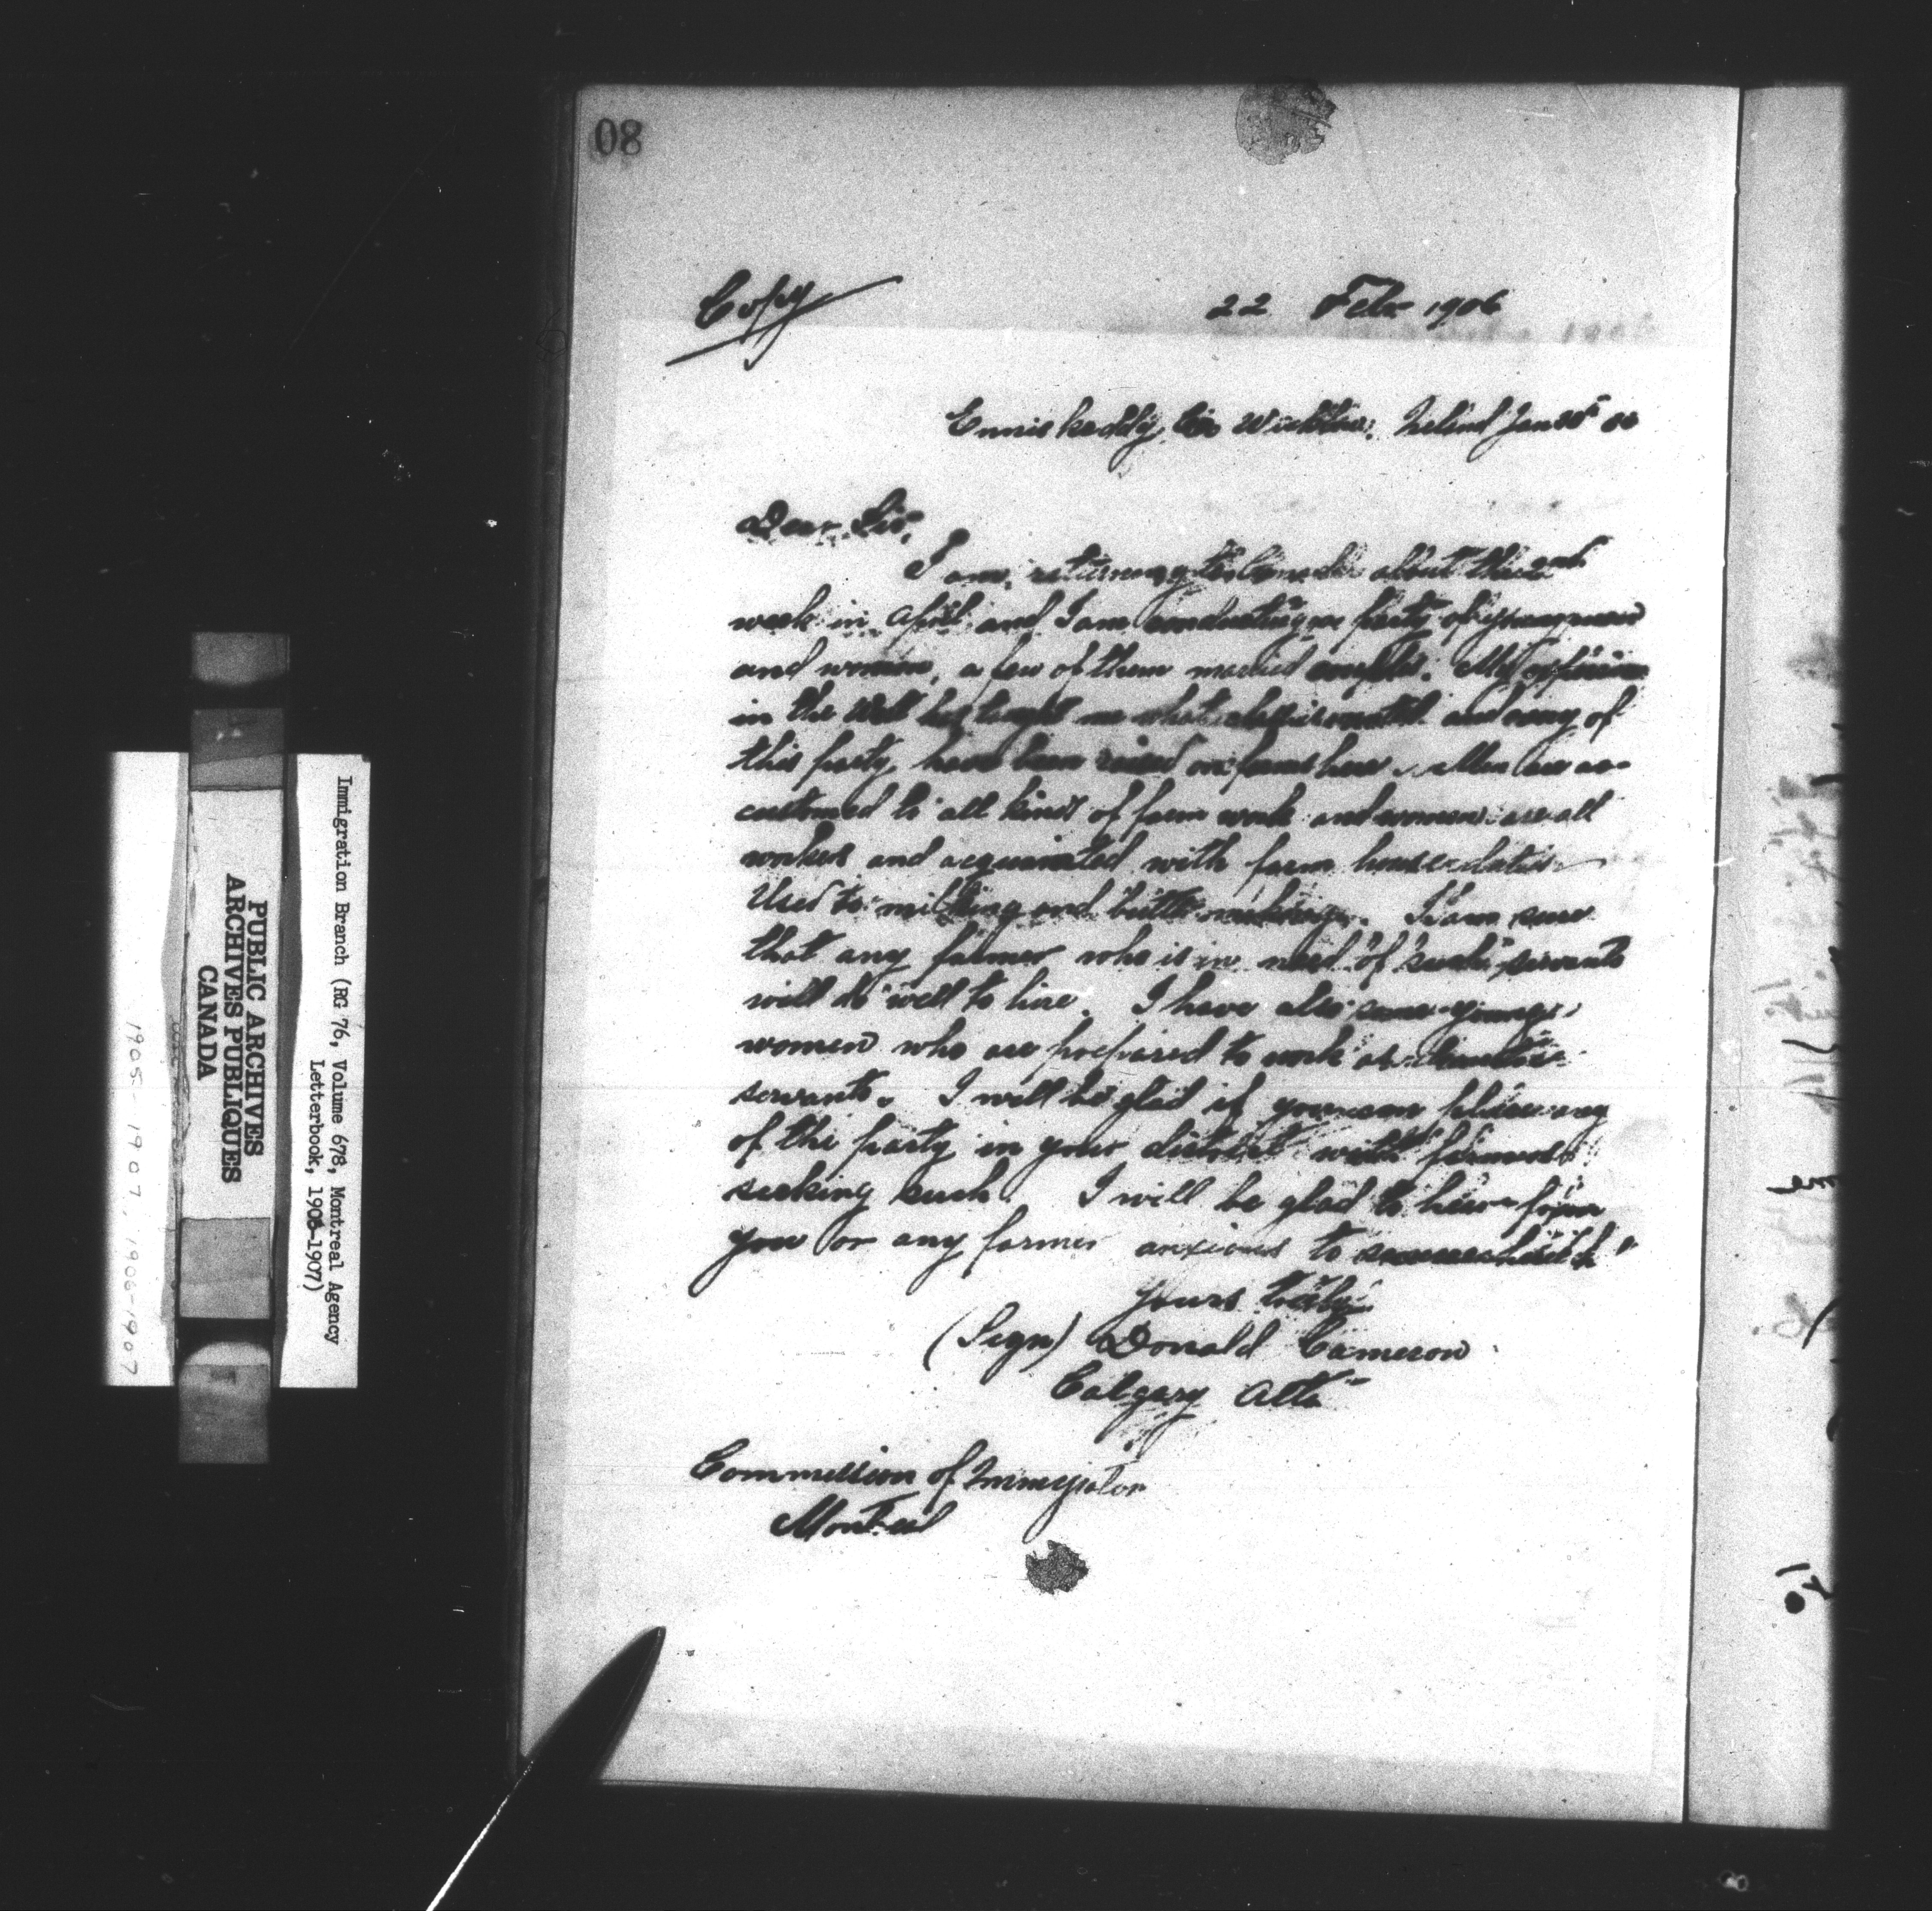 08
Copy
22 Feb 1906
Enniskeddy, Co Wicklow, Ireland Jan
Dear Sir,
I am returning to Canada about the 2nd
week in April and I am conducting a party of young men
and women, a few of them married couples. My
in the West has taught me what class is wanted and many of
this party have been raised on farms here. Men are ac-
customed to all kind of farm work and women are all
workers and acquainted with farm house duties
Used to milking and butter making. I am sure
that any farmer who is in need of such servants
will do well to hire. I have also some young
women who are prepared to work as
servants. I will be glad if you can place any
of the party in your district with farmers
seeking such. I will be glad to hear from
you or any farmer anxious to
Yours truly
(Sign) Donald Cameron
Calgary Alta
Commission of Immigration
Montreal
Immigration Branch (RG 76, Volume 678, Montreal Agency
Letterbook, 1905-1907)
PUBLIC ARCHIVES
ARCHIVES PUBLIQUES
CANADA
1905-1907, 1906-1907